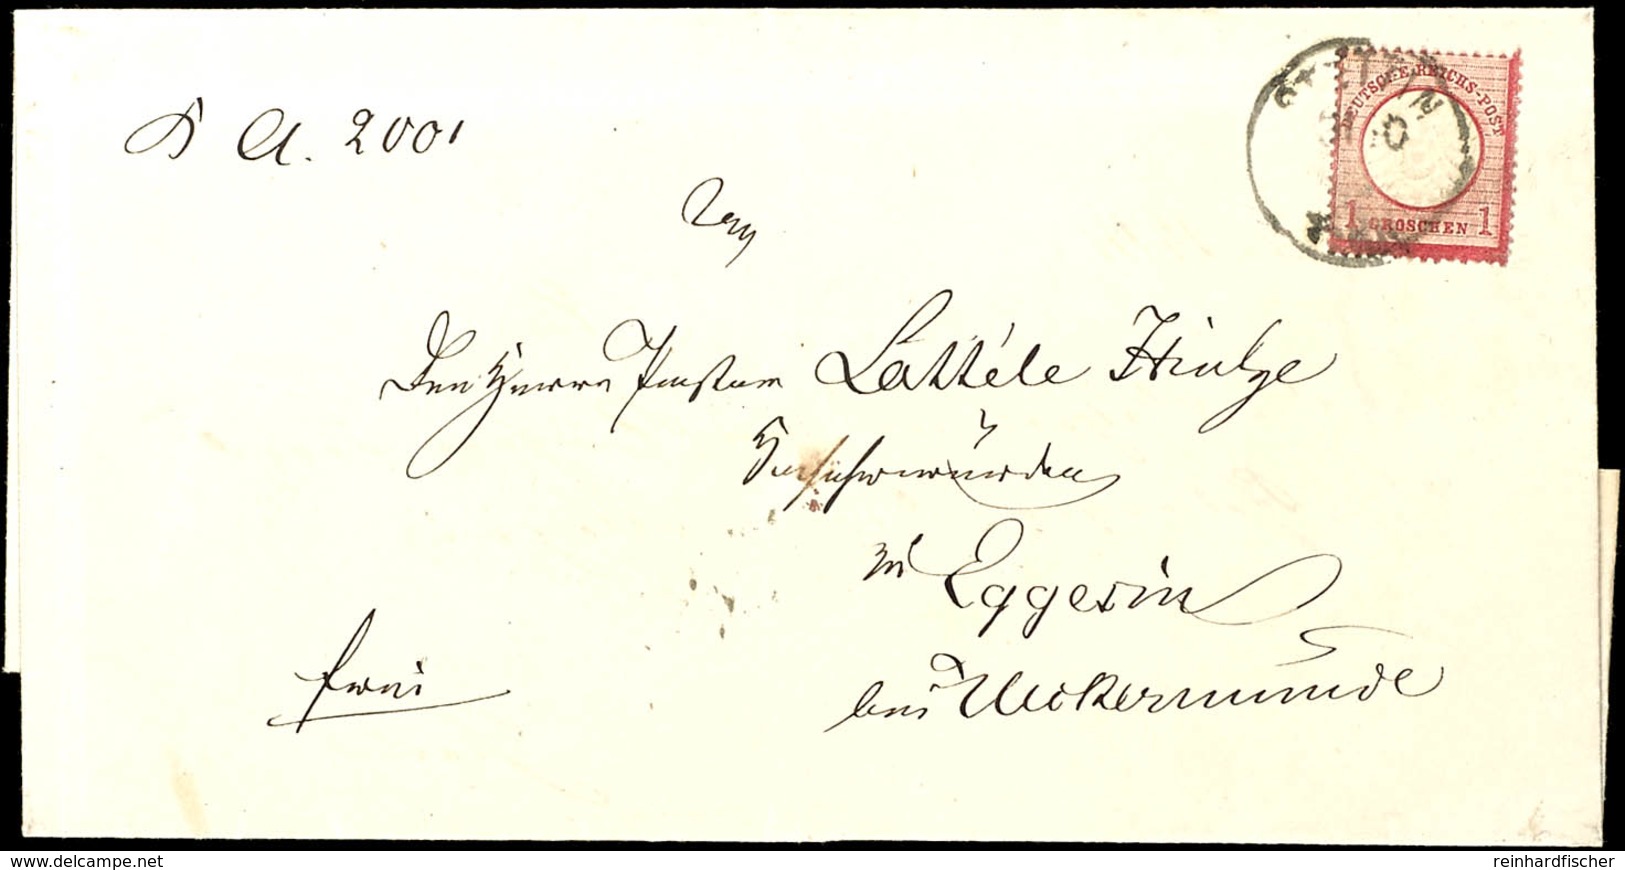 A. 2001
STETTIN
DEUTSCHE REICHS-POST
1 GROSCHEN 1
Den Herrn Pastor Lattéle Hintze
Hochehrwürden
zu Eggesin
bei Ueckermünde
frei
www.delcampe.net
reinhardfischer